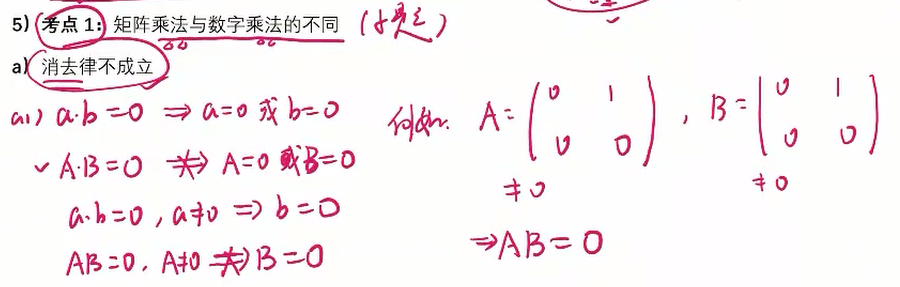 5) 考点 1: 矩阵乘法与数字乘法的不同 (小题)
a) 消去律不成立
a1) a·b=0 ⇒ a=0 或 b=0
✓ A·B=0 ⇏ A=0 或 B=0
a·b=0, a≠0 ⇒ b=0
AB=0, A≠0 ⇏ B=0
例如: A=(0 1
0 0), B=(0 1
0 0)
≠0 ≠0
⇒AB=0